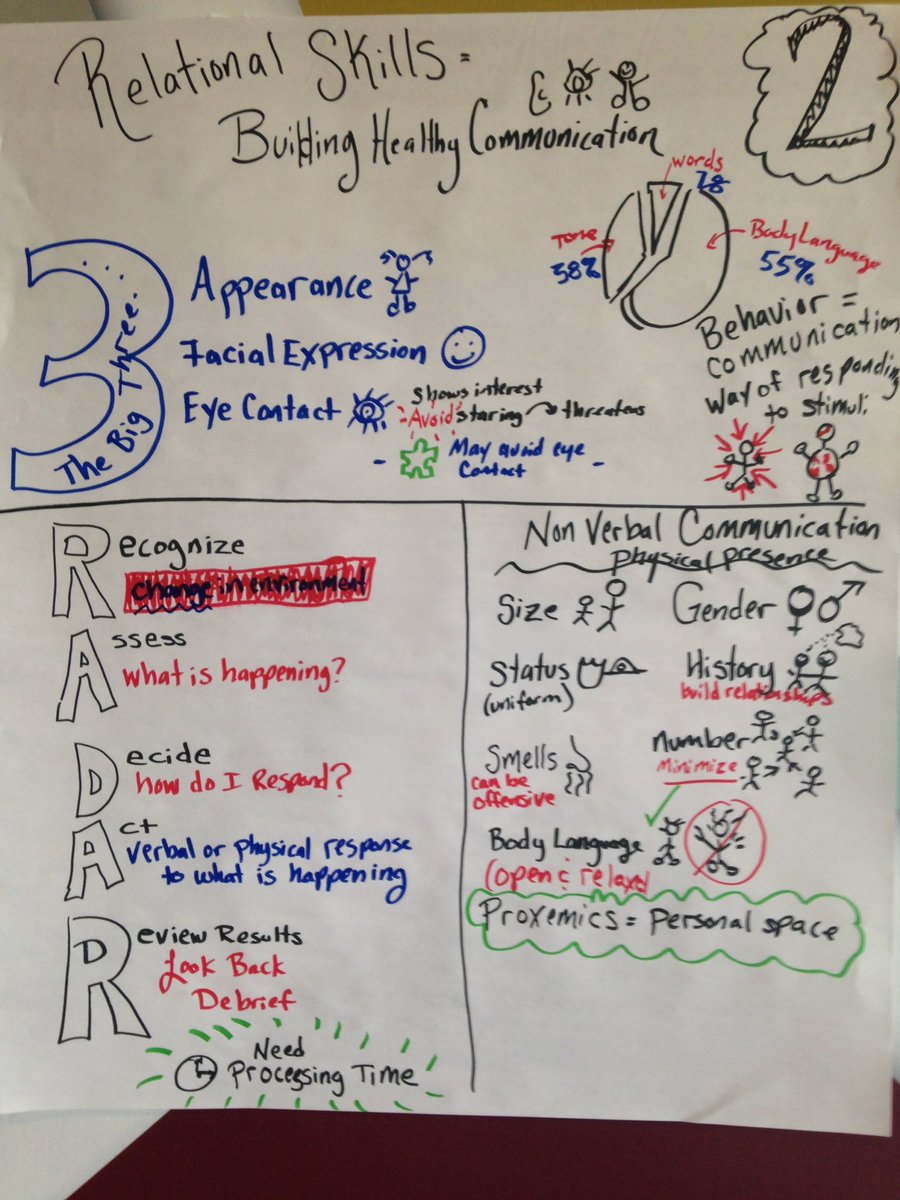 Relational Skills =
Building Healthy Communication
2
words
7%
Tone
38%
Body Language
55%
3
The Big Three...
Appearance
Facial Expression
Eye Contact
Shows interest
"Avoid" staring → threatens
- May avoid eye
contact -
Behavior =
communication
way of responding
to stimuli
Recognize
change in environment
Assess
What is happening?
Decide
How do I Respond?
Act
Verbal or physical response
to what is happening
Review Results
Look Back
Debrief
Need
Processing Time
Non Verbal Communication
Physical presence
Size
Gender
Status
(uniform)
History
build relationships
Smells
can be
offensive
Number
Minimize
Body Language
(open & relaxed
Proxemics = Personal space